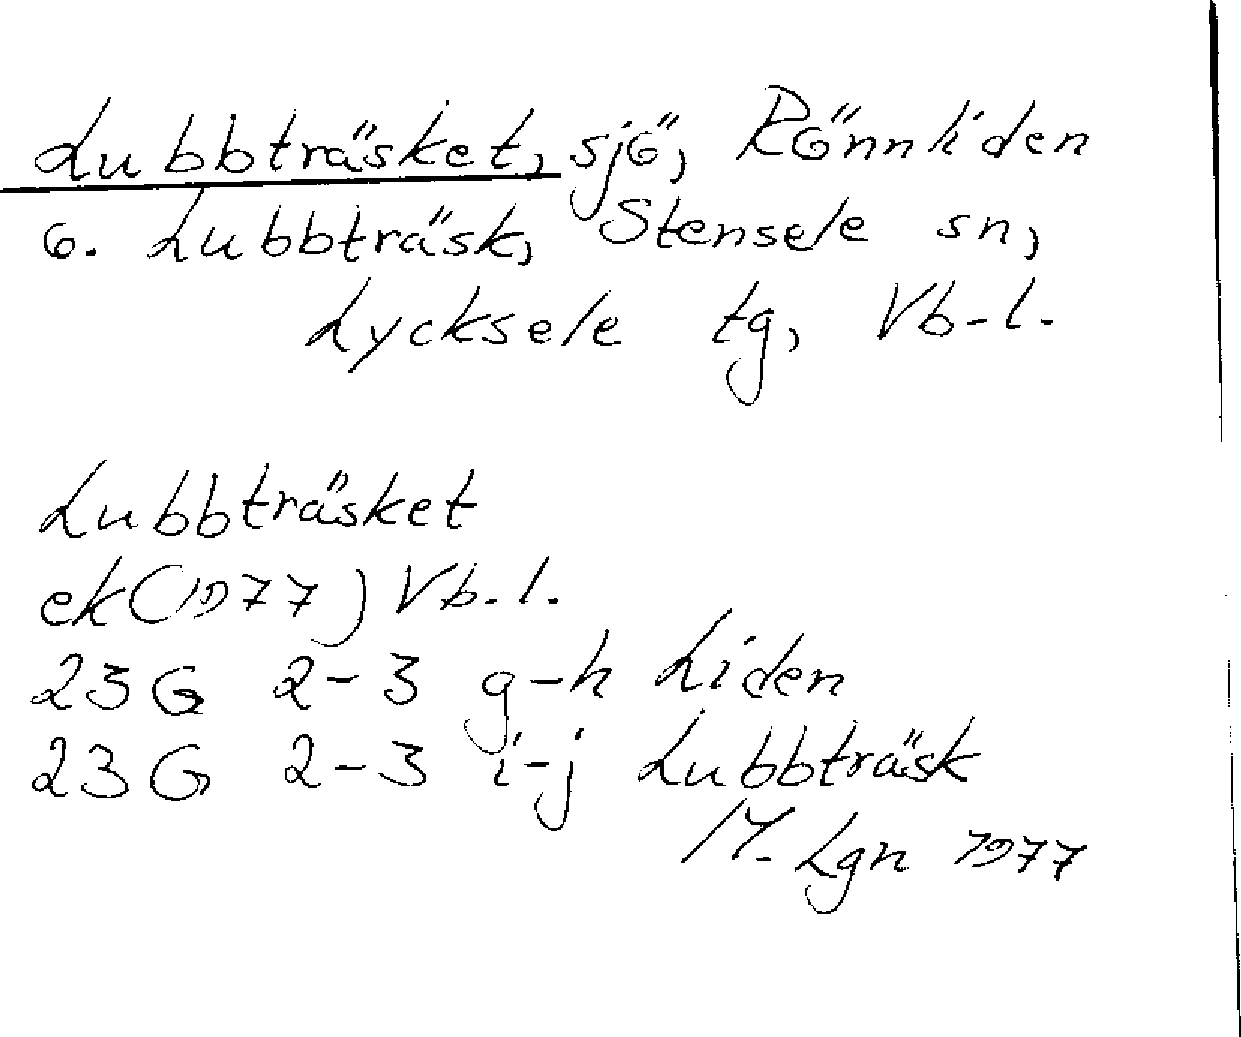 Lubbträsket, sjö, Rönnliden
o. Lubbträsk, Stensele sn,
Lycksele tg, Vb-l.
Lubbträsket
ek(1977) Vb.l.
23G 2-3 g-h Liden
23G 2-3 i-j Lubbträsk
M. Lgn 1977